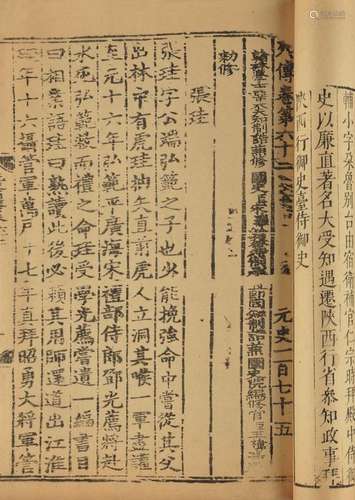 韓小字朶魯別台由宿衛補官仁宗時拜殿中侍御
史以廉直著名大受知遇遷陝西行省參知政事
陝西行御史臺侍御史
列傳卷第六十二 元史一百七十五
翰林學士亞中大夫知制誥兼修國史
制誥兼國史院編修官臣王禕
勅修
張珪
張珪字公端弘範之子也 能挽強命中嘗從其父
出林中有虎珪抽矢直前虎人立洞其喉一軍盡讙
至元十六年弘範平廣海宋禮部侍郎鄧光薦將赴
水死弘範救而禮之命珪受學光薦嘗遺一編書目
曰相業語珪曰熟讀此後必賴其用師還道出江淮
年十六攝管軍萬戶十七年真拜昭勇大將軍管